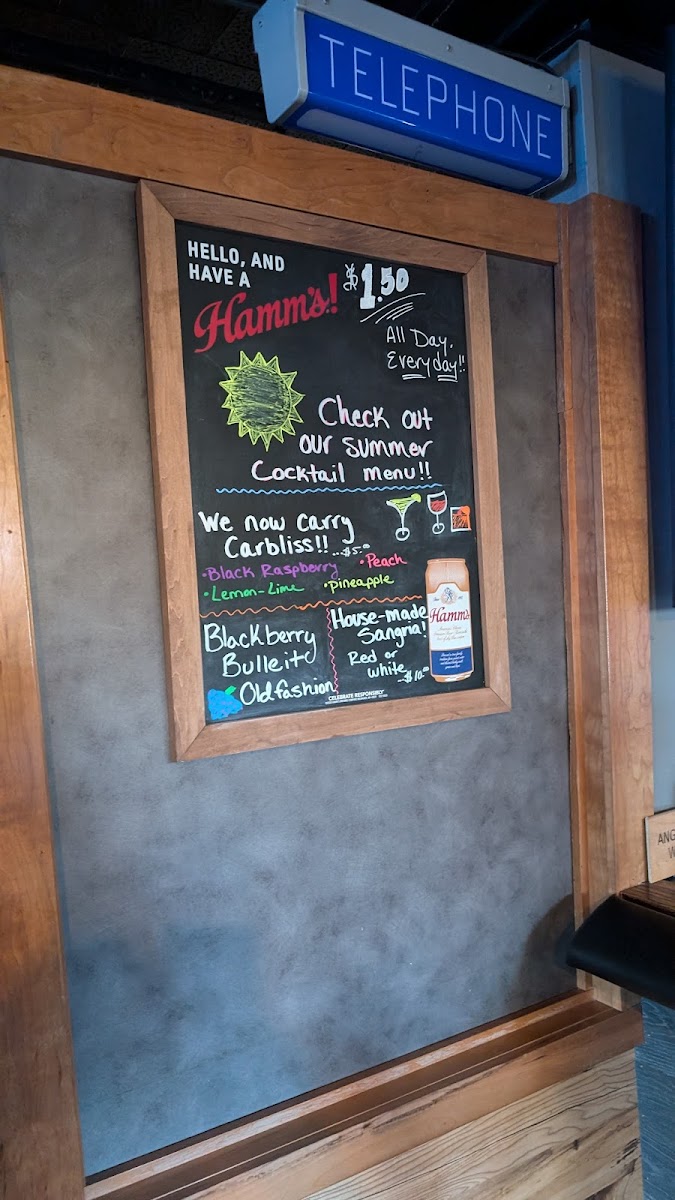 TELEPHONE
HELLO, AND
HAVE A
Hamm's!
$1.50
All Day,
Everyday!!
Check out
our summer
Cocktail menu!!
We now carry
Carbliss!! ...$5.00
•Black Raspberry •Peach
•Lemon-Lime •Pineapple
Blackberry
Bulleit
Oldfashion
House-made
Sangria!
Red or
white
...$10.00
Hamm's
CELEBRATE RESPONSIBLY
ANG
W